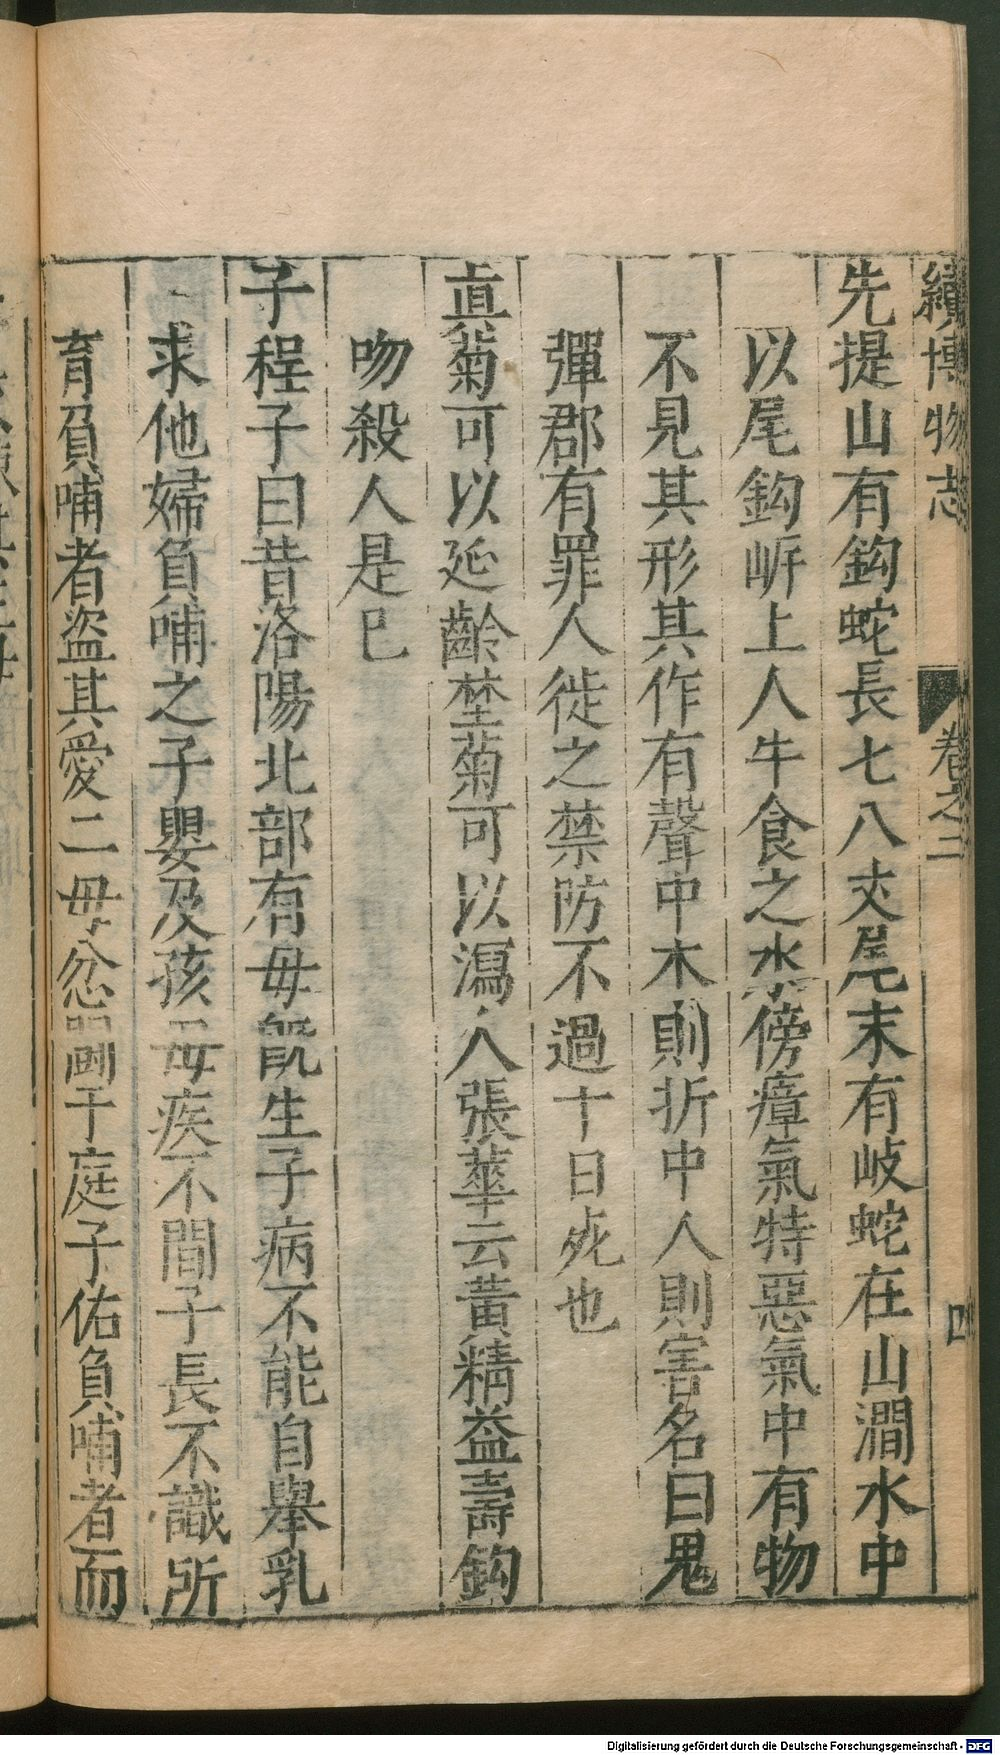 續博物志 卷之二 四
先提山有鈎蛇長七八丈尾末有岐蛇在山澗水中
以尾鈎岍上人牛食之水傍瘴氣特惡氣中有物
不見其形其作有聲中木則折中人則害名曰鬼
彈郡有罪人徙之禁防不過十日死也
真菊可以延齡埜菊可以瀉人張華云黃精益壽鈎
吻殺人是已
子程子曰昔洛陽北部有母旣生子病不能自舉乳
求他婦負哺之子嬰及孩母疾不間子長不識所
育負哺者盜其愛二母忿鬬于庭子佑負哺者而
Digitalisierung gefördert durch die Deutsche Forschungsgemeinschaft - DFG